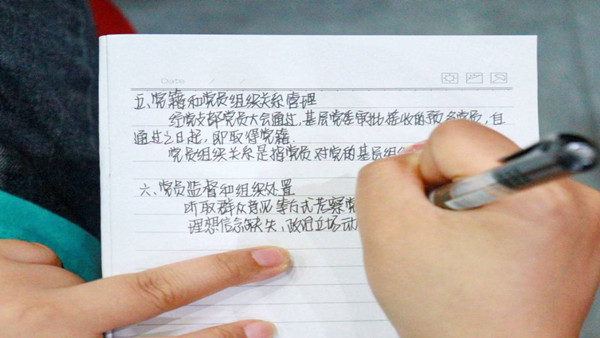 Date
五、党籍和党员组织关系管理
经党支部党员大会通过，基层党委审批接收的预备党员，自
通过之日起，即取得党籍
党员组织关系是指党员对党的基层组
六、党员监督和组织处置
听取群众意见等方式考察党
理想信念缺失，政治立场动